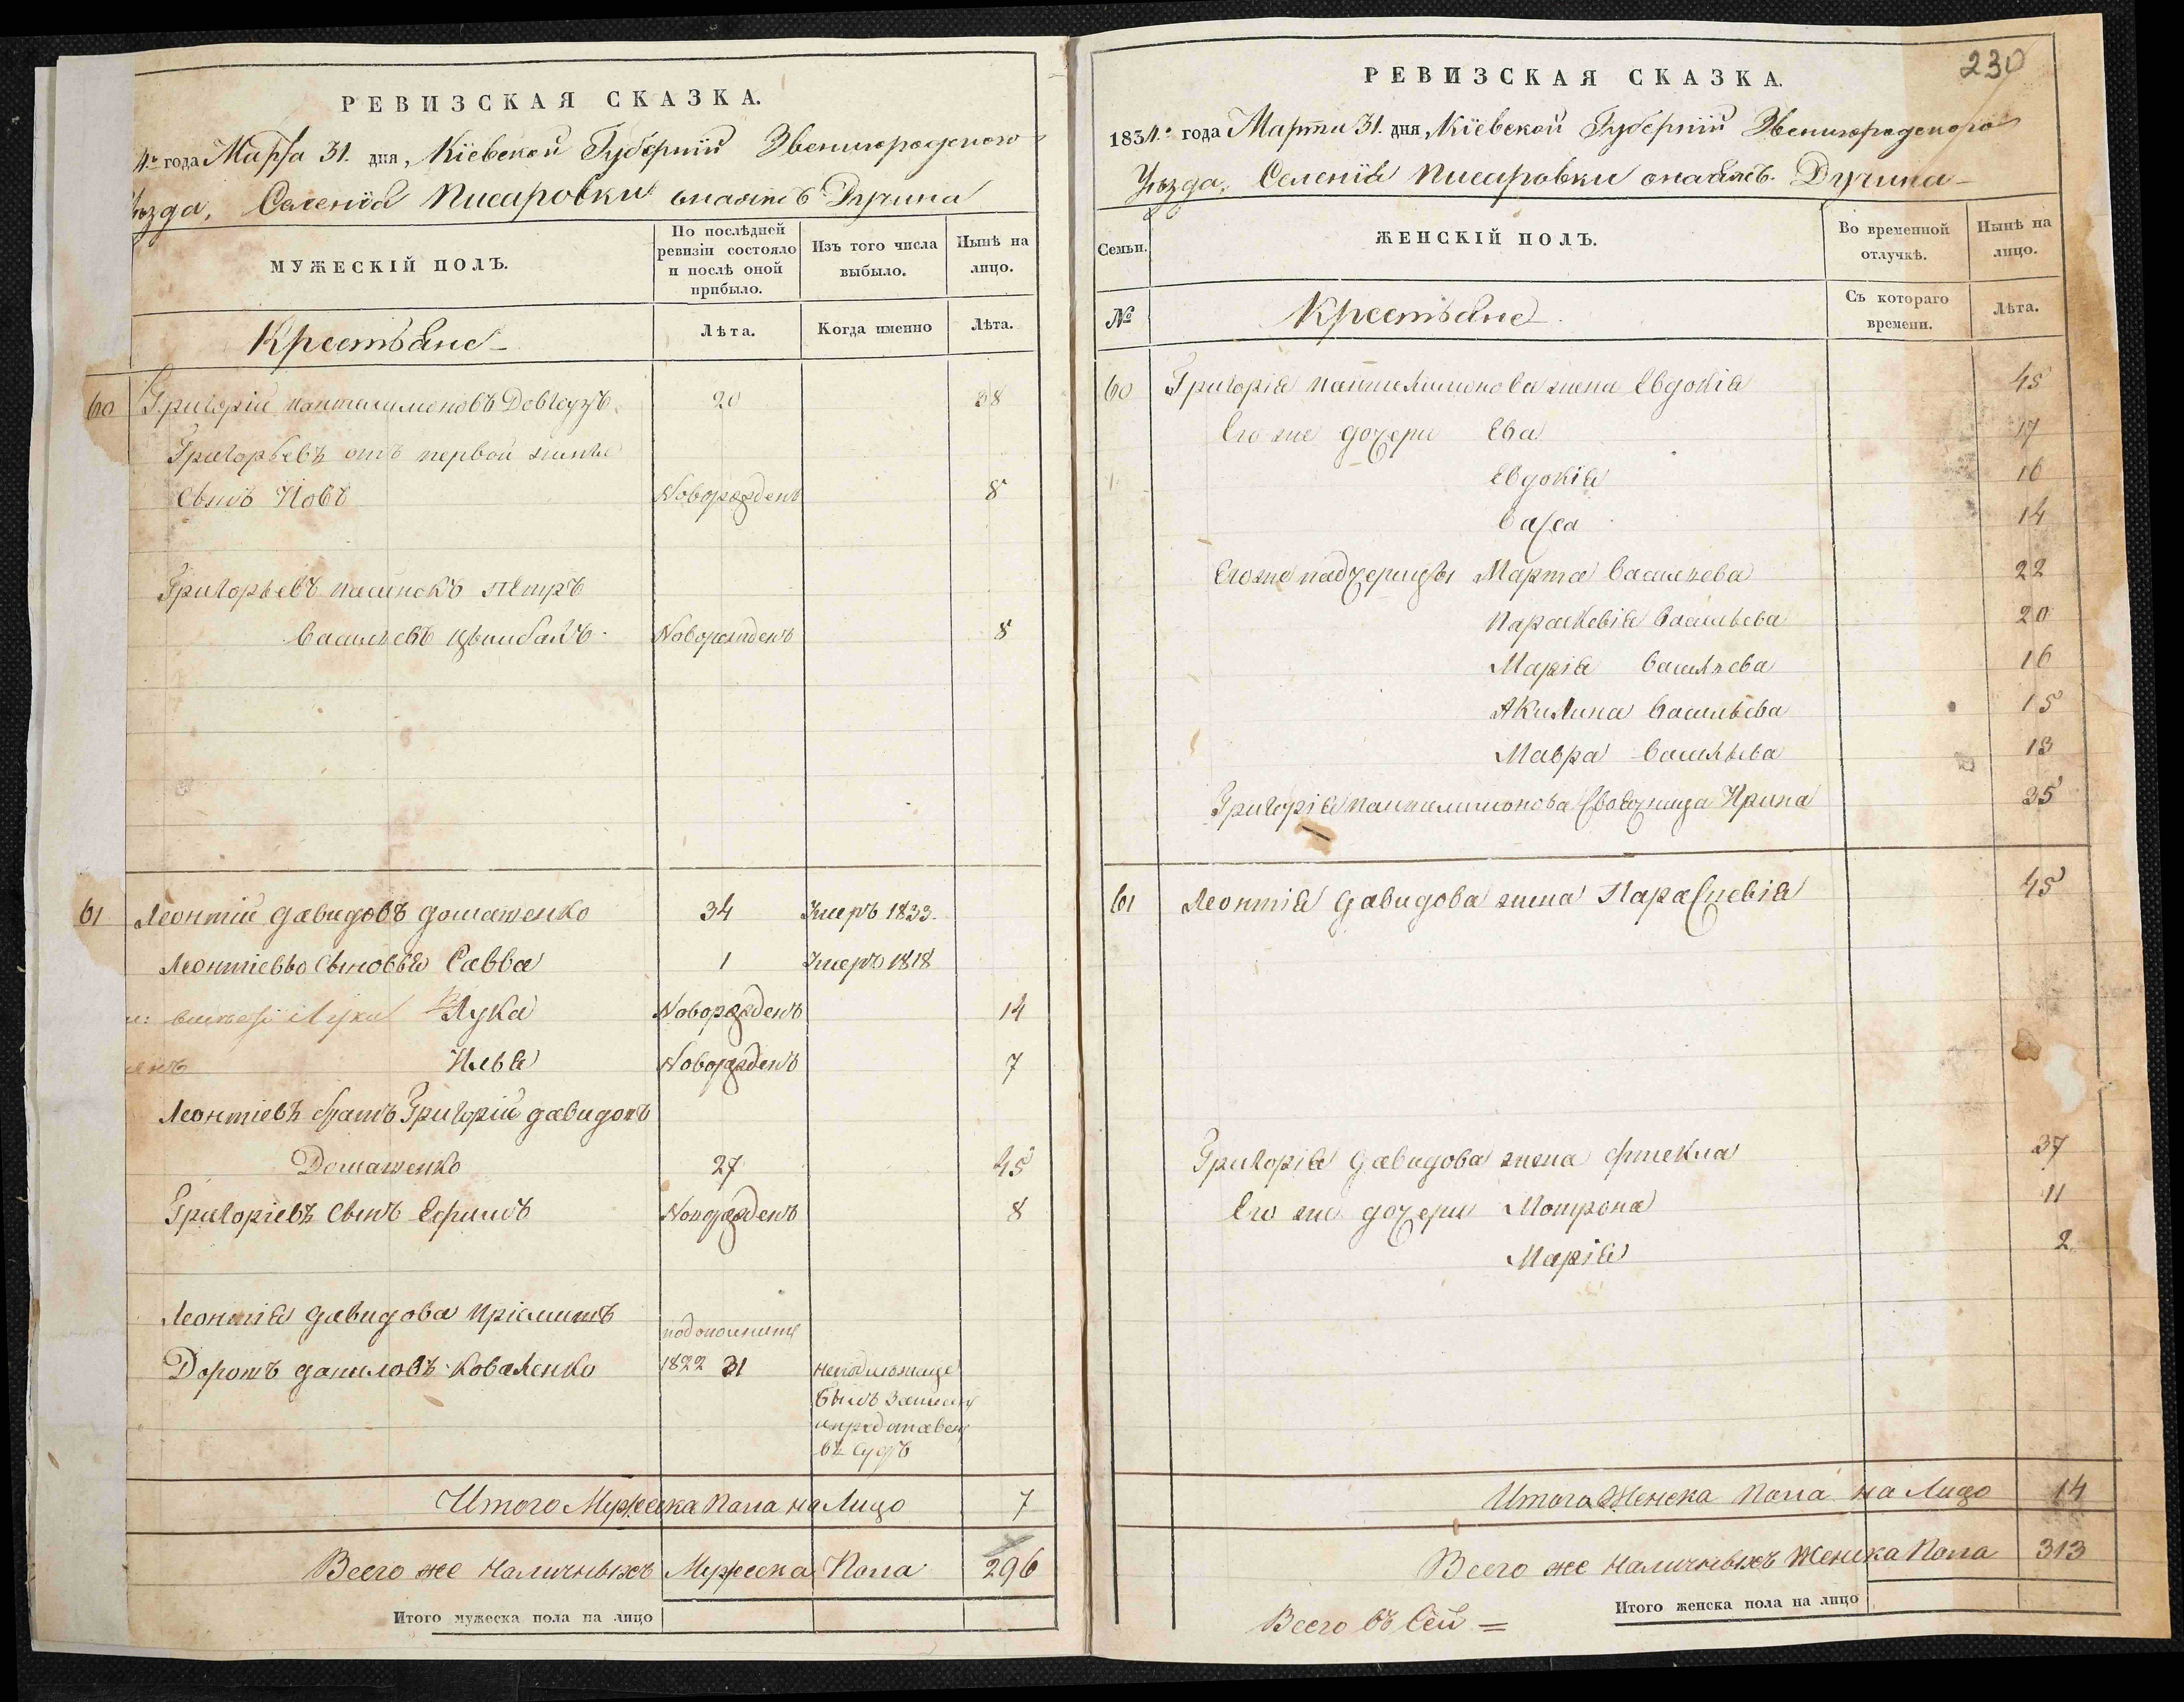 РЕВИЗСКАЯ СКАЗКА.
4го года Марта 31. дня, Кіевской Губерніи Звенигородского
ѣзда, Селенія Писаровки
МУЖЕСКІЙ ПОЛЪ.
По послѣдней ревизіи состояло и послѣ оной прибыло.
Изъ того числа выбыло.
Нынѣ на лицо.
Крестьяне
Лѣта.
Когда именно
Лѣта.
60 Григорій Пантилимоновъ Довгоузъ 20 38
Григорьевъ отъ первой жены
сынъ Иовъ Новорожденъ 8
Григорьевъ пасинокъ Петръ
Васильевъ Цымбалъ Новорожденъ 8
61 Леонтій Давидовъ Домашенко 34 Умеръ 1833.
Леонтіевы сыновья Савва 1 Умеръ 1818
Лука Новорожденъ 14
Илья Новорожденъ 7
Леонтіевъ братъ Григорій Давидовъ
Домашенко 27 45
Григоріевъ сынъ Ефимъ Новорожденъ 8
Леонтія Давидова пріемышъ
Дорошъ Даниловъ Коваленко 1822 31
былъ
въ судъ
Итого Мужеска Пола на Лицо 7
Всего же Наличныхъ Мужеска Пола 296
Итого мужеска пола на лицо
230
РЕВИЗСКАЯ СКАЗКА.
1834го года Марта 31. дня, Кіевской Губерніи Звенигородского
Уѣзда, Селенія Писаровки
Семьи.
ЖЕНСКІЙ ПОЛЪ.
Во временной отлучкѣ.
Нынѣ на лицо.
№
Крестьяне
Съ котораго времени.
Лѣта.
60 Григорія Пантелимонова жена Евдокія 45
Его же дочери Ева 17
Евдокія 16
Васса 14
Его же падчерицы Марта Васильева 22
Параскевія Васильева 20
Марія Васильева 16
Акилина Васильева 15
Мавра Васильева 13
Григорія Пантилимонова своячница Ирина 35
61 Леонтія Давидова жена Параскевія 45
Григорія Давидова жена 37
Его же дочери Мотрона 11
Марія 2
Итого Женска Пола на Лицо 14
Всего же Наличныхъ Женска Пола 313
Итого женска пола на лицо
Всего въ сей =